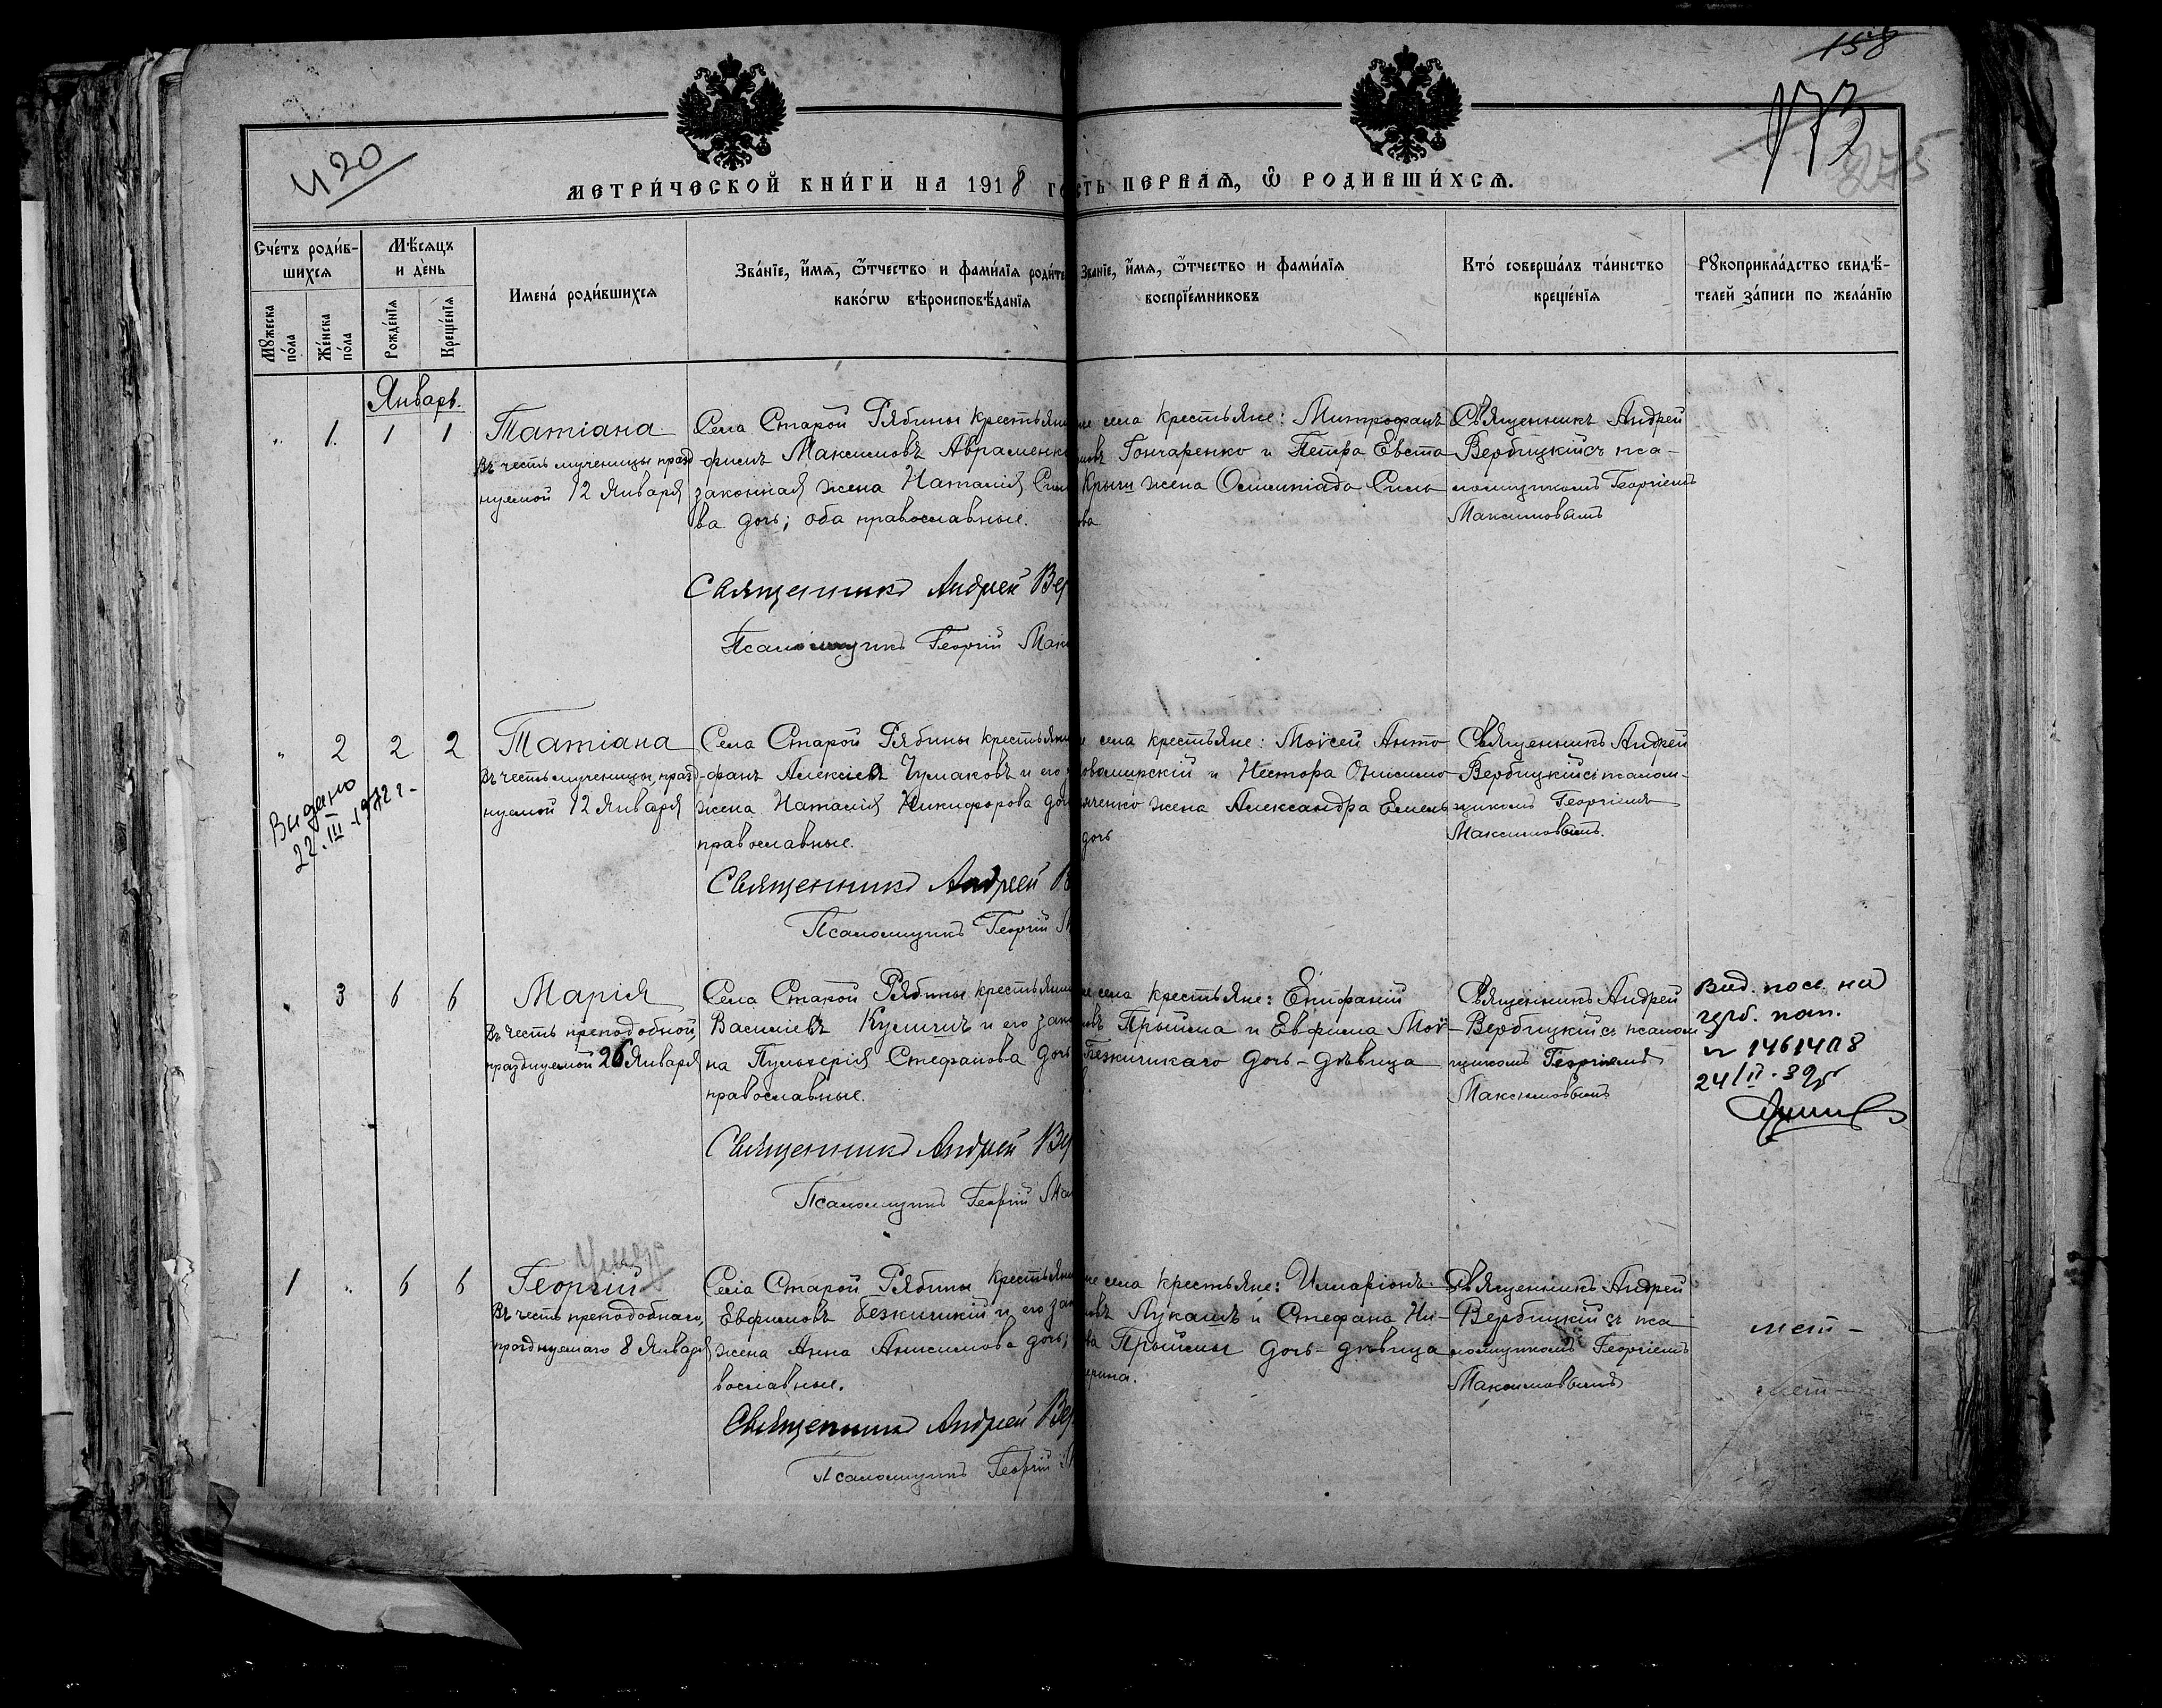 158
173
420
275
МЕТРИ́ЧЕСКОЙ КНИ́ГИ НА 1918 Г
СТЬ ПЕРВАѦ, Ѿ РОДИВШИ́ХСѦ.
Сче́тъ роди́в-
шихсѧ
Мѣ́сѧцъ
и де́нь
Мꙋ́жеска
по́ла
Же́нска
по́ла
Рожде́нїѧ
Креще́нїѧ
Имена́ роди́вшихсѧ
Зва́нїе, и́мѧ, ѻ҆́тчество и фами́лїѧ роди́те
како́гѡ вѣроисповѣ́данїѧ
Зва́нїе, и́мѧ, ѻ҆́тчество и фами́лїѧ
воспрїе́мниковъ
Кто́ соверша́лъ та́инство
креще́нїѧ
Рꙋкоприкла́дство свидѣ́-
телей за́писи по жела́нїю
Январь.
" 1. 1 1
Татіана
Въ честь мученицы празд
нуемой 12 Января
Села Старой Рябины крестьяни
-фимъ Максимовъ Авраменко
законная жена Наталія Сим
ва дочь; оба православные.
Священникъ Андрей Вер
Псаломщикъ Георгій Мак
не села крестьяне: Митрофанъ
мовъ Гончаренко и Петра Евста
Крычи жена Олимпіада Силь
ова
Священникъ Андрей
Вербицкій съ пса-
ломщикомъ Георгіемъ
Максимовымъ
" 2 2 2
Выдано
22.III-1972 г-
Татіана
Въ честь мученицы, празд
нуемой 12 Января
Села Старой Рябины крестьяни
-фанъ Алексіевъ Чумаковъ и его з
жена Наталія Никифорова доч
православные.
Священникъ Андрей В
Псаломщикъ Георгій М
е села крестьяне: Моѵсей Анто
овомирскій и Нестора Онисимо
яченко жена Александра Емель
дочь
Священникъ Андрей
Вербицкій съ псалом-
щикомъ Георгіемъ
Максимовымъ.
" 3 6 6
Марія
Въ честь преподобной,
празднуемой 26 Января
Села Старой Рябины крестьяни
Василіевъ Кулишъ и его зако
на Пульхерія Стефанова дочь
православные.
Священникъ Андрей Ве
Псаломщикъ Георгій Мак
не села крестьяне: Епифаній
овъ Прыйма и Евфима Моѵ-
Безкичкаго дочь-дѣвица
Священникъ Андрей
Вербицкій съ псалом
щикомъ Георгіемъ
Максимовымъ
Вид. посв. на
герб. пап.
№ 1461408
24/II-39р
1 " 6 6
Георгій
Въ честь преподобнаго,
празднуемаго 8 Января
Села Старой Рябины крестьяни
Евфимовъ Безкичкій и его зак
жена Анна Анисимова дочь;
вославные.
Священникъ Андрей Вер
Псаломщикъ Георгій М
не села крестьяне: Илларіонъ
ровъ Лукашъ и Стефана Ни-
ва Прыймы дочь-дѣвица
ерина.
Священникъ Андрей
Вербицкій съ пса
ломщикомъ Георгіемъ
Максимовымъ